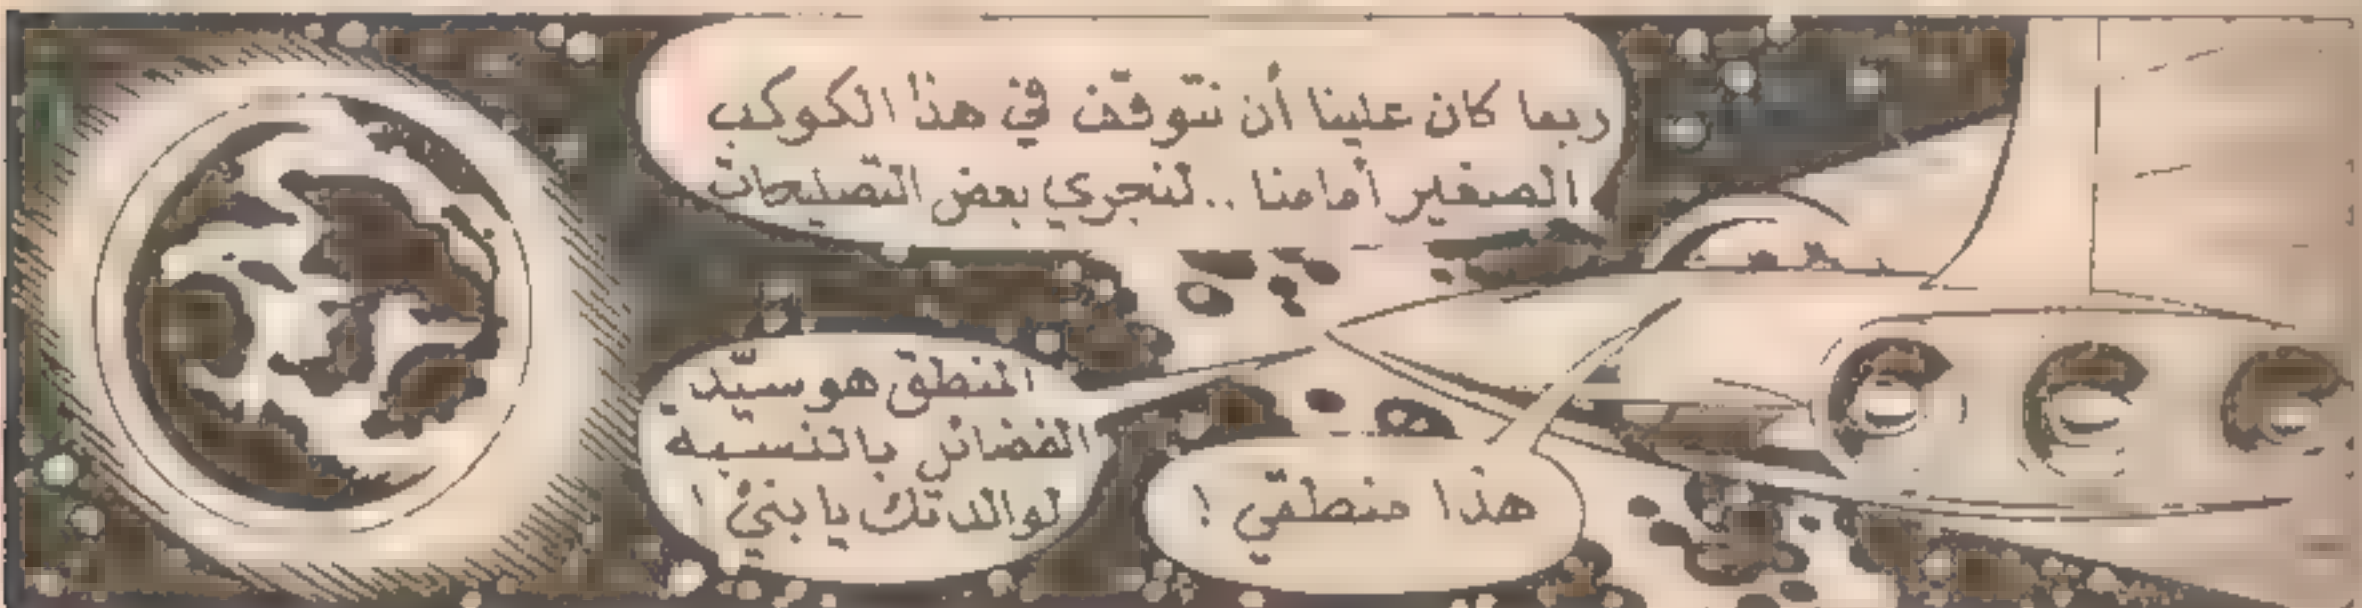 ربما كان علينا أن نتوقّف في هذا الكوكب
الصغير أمامنا .. لنجري بعض التصليحات
هذا منطقيّ !
المنطق هو سيّد
الفضائل بالنسبة
لوالدتك يا بنيّ !